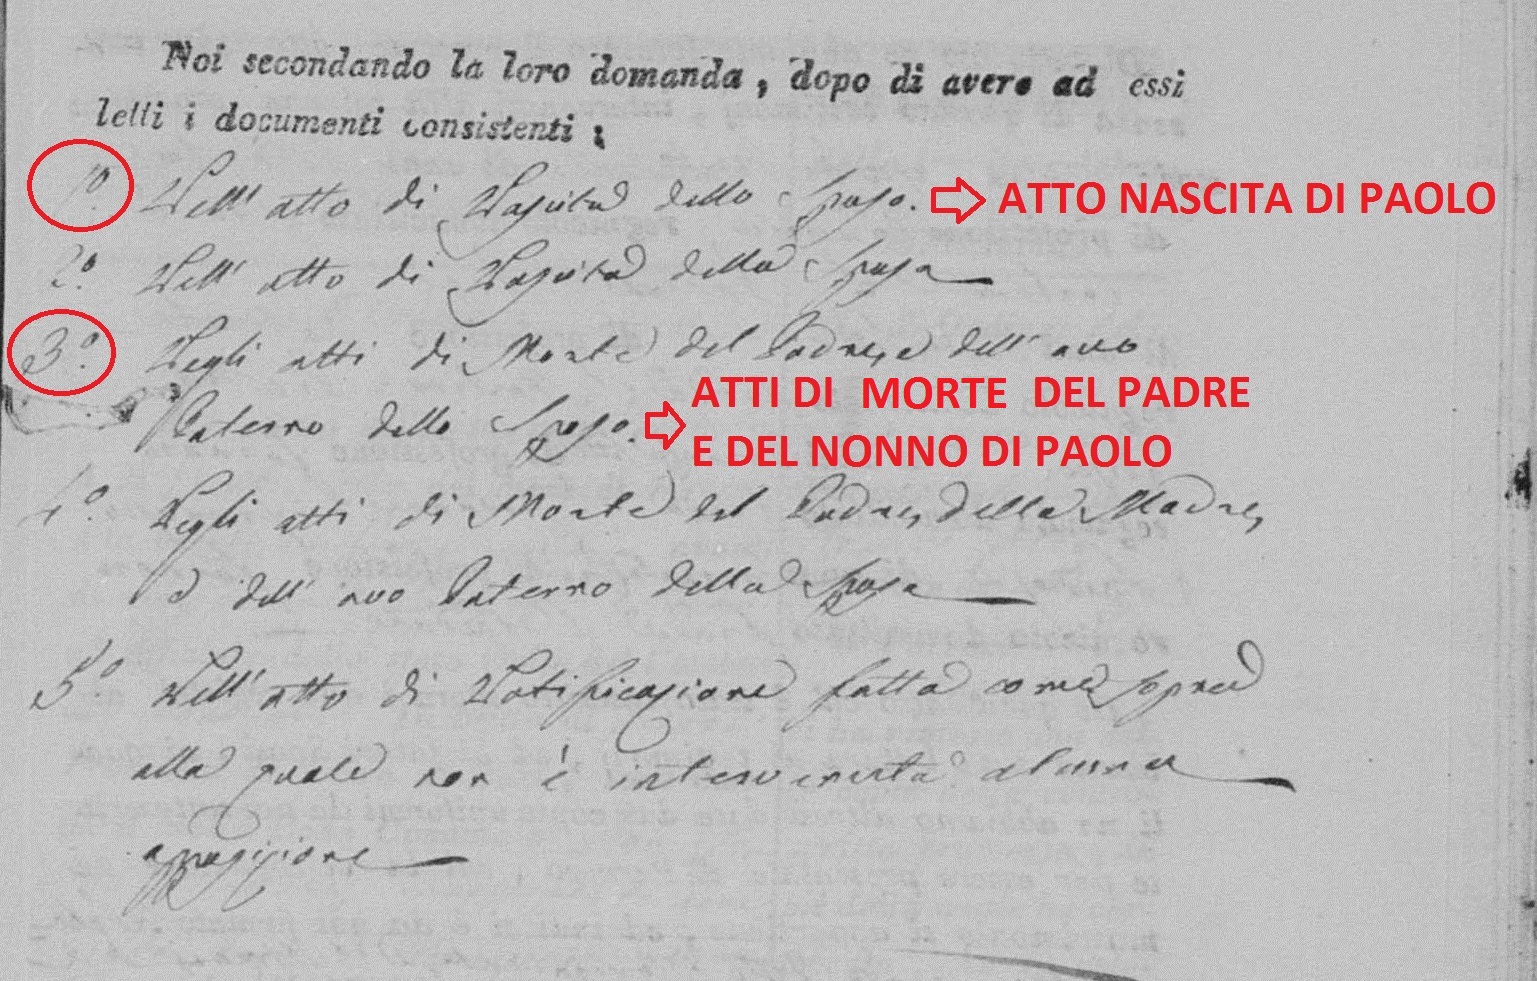 Noi secondando la loro domanda, dopo di avere ad essi
letti i documenti consistenti:
1º. Nell' atto di Nascita dello Sposo. ATTO NASCITA DI PAOLO
2º. Nell' atto di Nascita della Sposa
3º. Negli atti di Morte del Padre, e dell' avo
Paterno dello Sposo. ATTI DI MORTE DEL PADRE
E DEL NONNO DI PAOLO
4º. Negli atti di Morte del Padre, della Madre,
e dell' avo Paterno della Sposa
5º Nell' atto di Notificazione fatta come sopra
alla quale non è intervenuta alcuna
opposizione